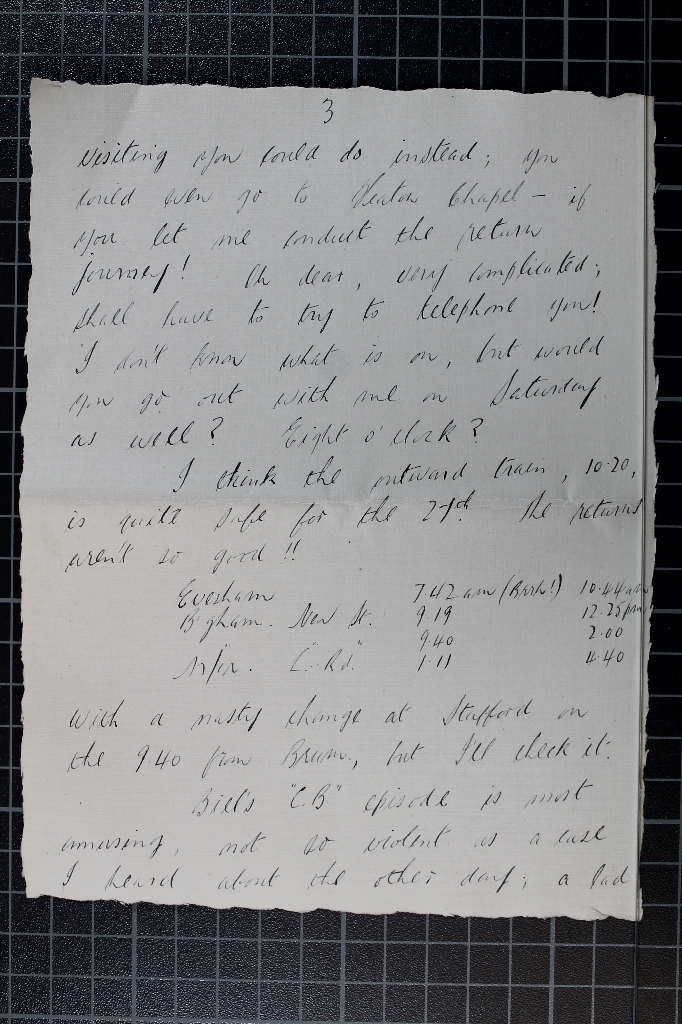 3
visiting you could do instead; you
could even go to Heaton Chapel – if
you let me conduct the return
journey! Oh dear, very complicated;
shall have to try to telephone you!
I don't know what is on, but would
you go out with me on Saturday
as well? Eight o'clock?
I think the outward train, 10.20,
is quite safe for the 27th. The returns
aren't so good!!
Evesham 7.42 am (Brrh!) 10.44 am
B'gham. New St. 9.19 12.25 pm
9.40 2.00
M/cr. L. Rd. 1.11 4.40
With a nasty change at Stafford on
the 9.40 from Brum., but I'll check it.
Bill's "C.B" episode is most
amusing, not so violent as a case
I heard about the other day; a lad